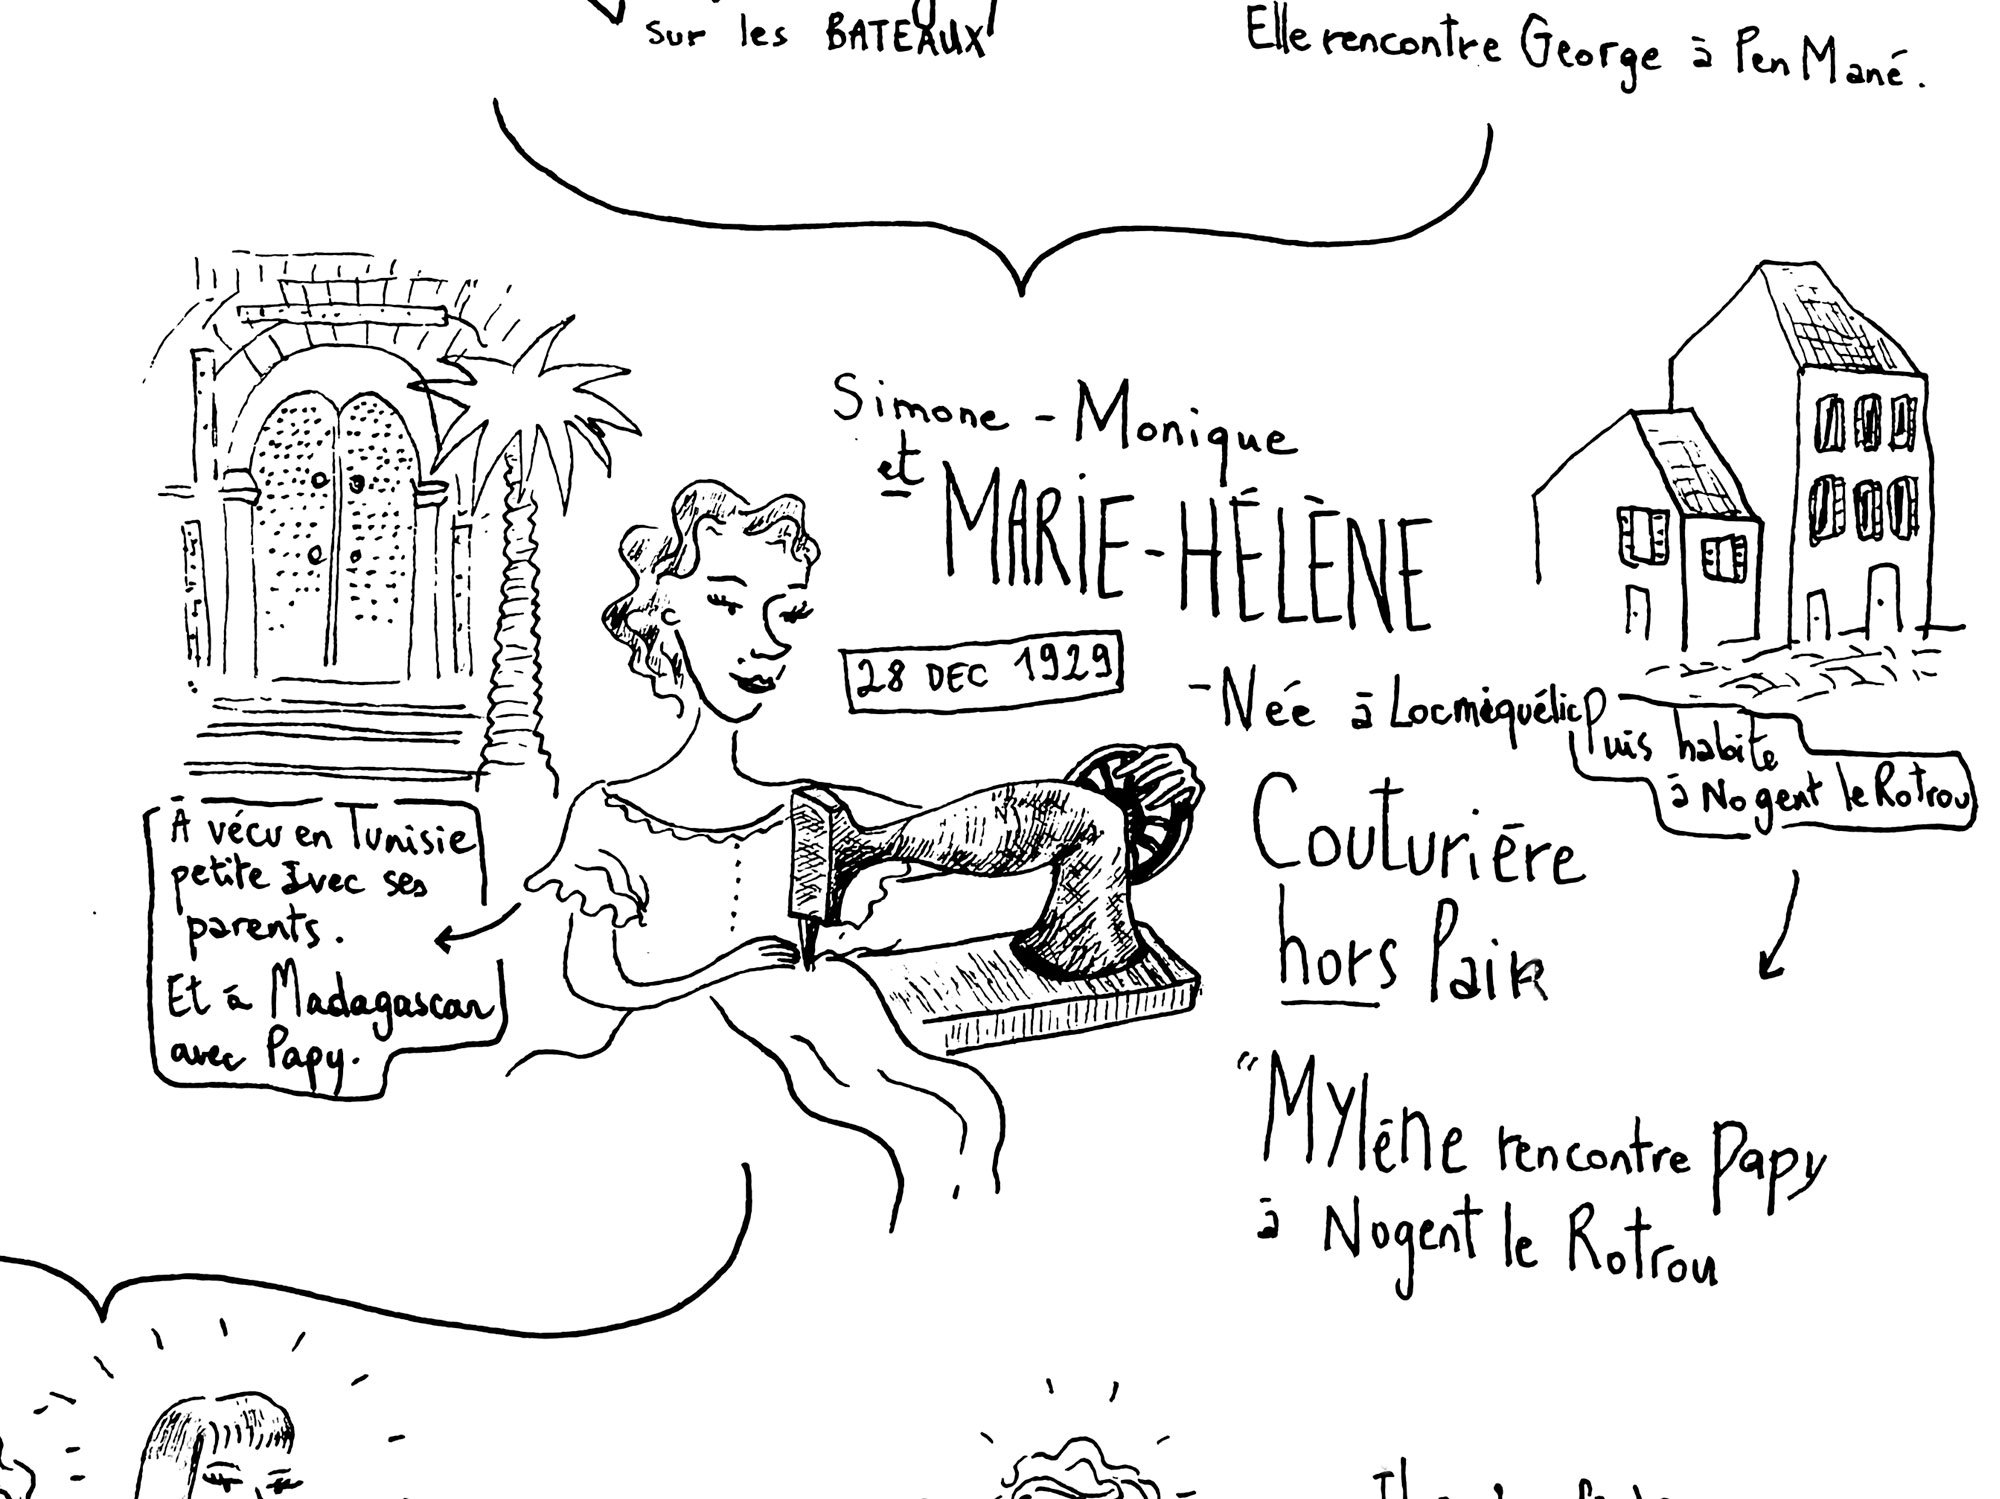 sur les BATEAUX
Elle rencontre George à Pen Mané.
Simone - Monique
et
MARIE-HÉLÈNE
28 DEC 1929
- Née à Locmiquélic
Puis habite
à Nogent le Rotrou
Couturière
hors Pair
"Mylène rencontre Papy
à Nogent le Rotrou
A vécu en Tunisie
petite avec ses
parents.
Et à Madagascar
avec Papy.